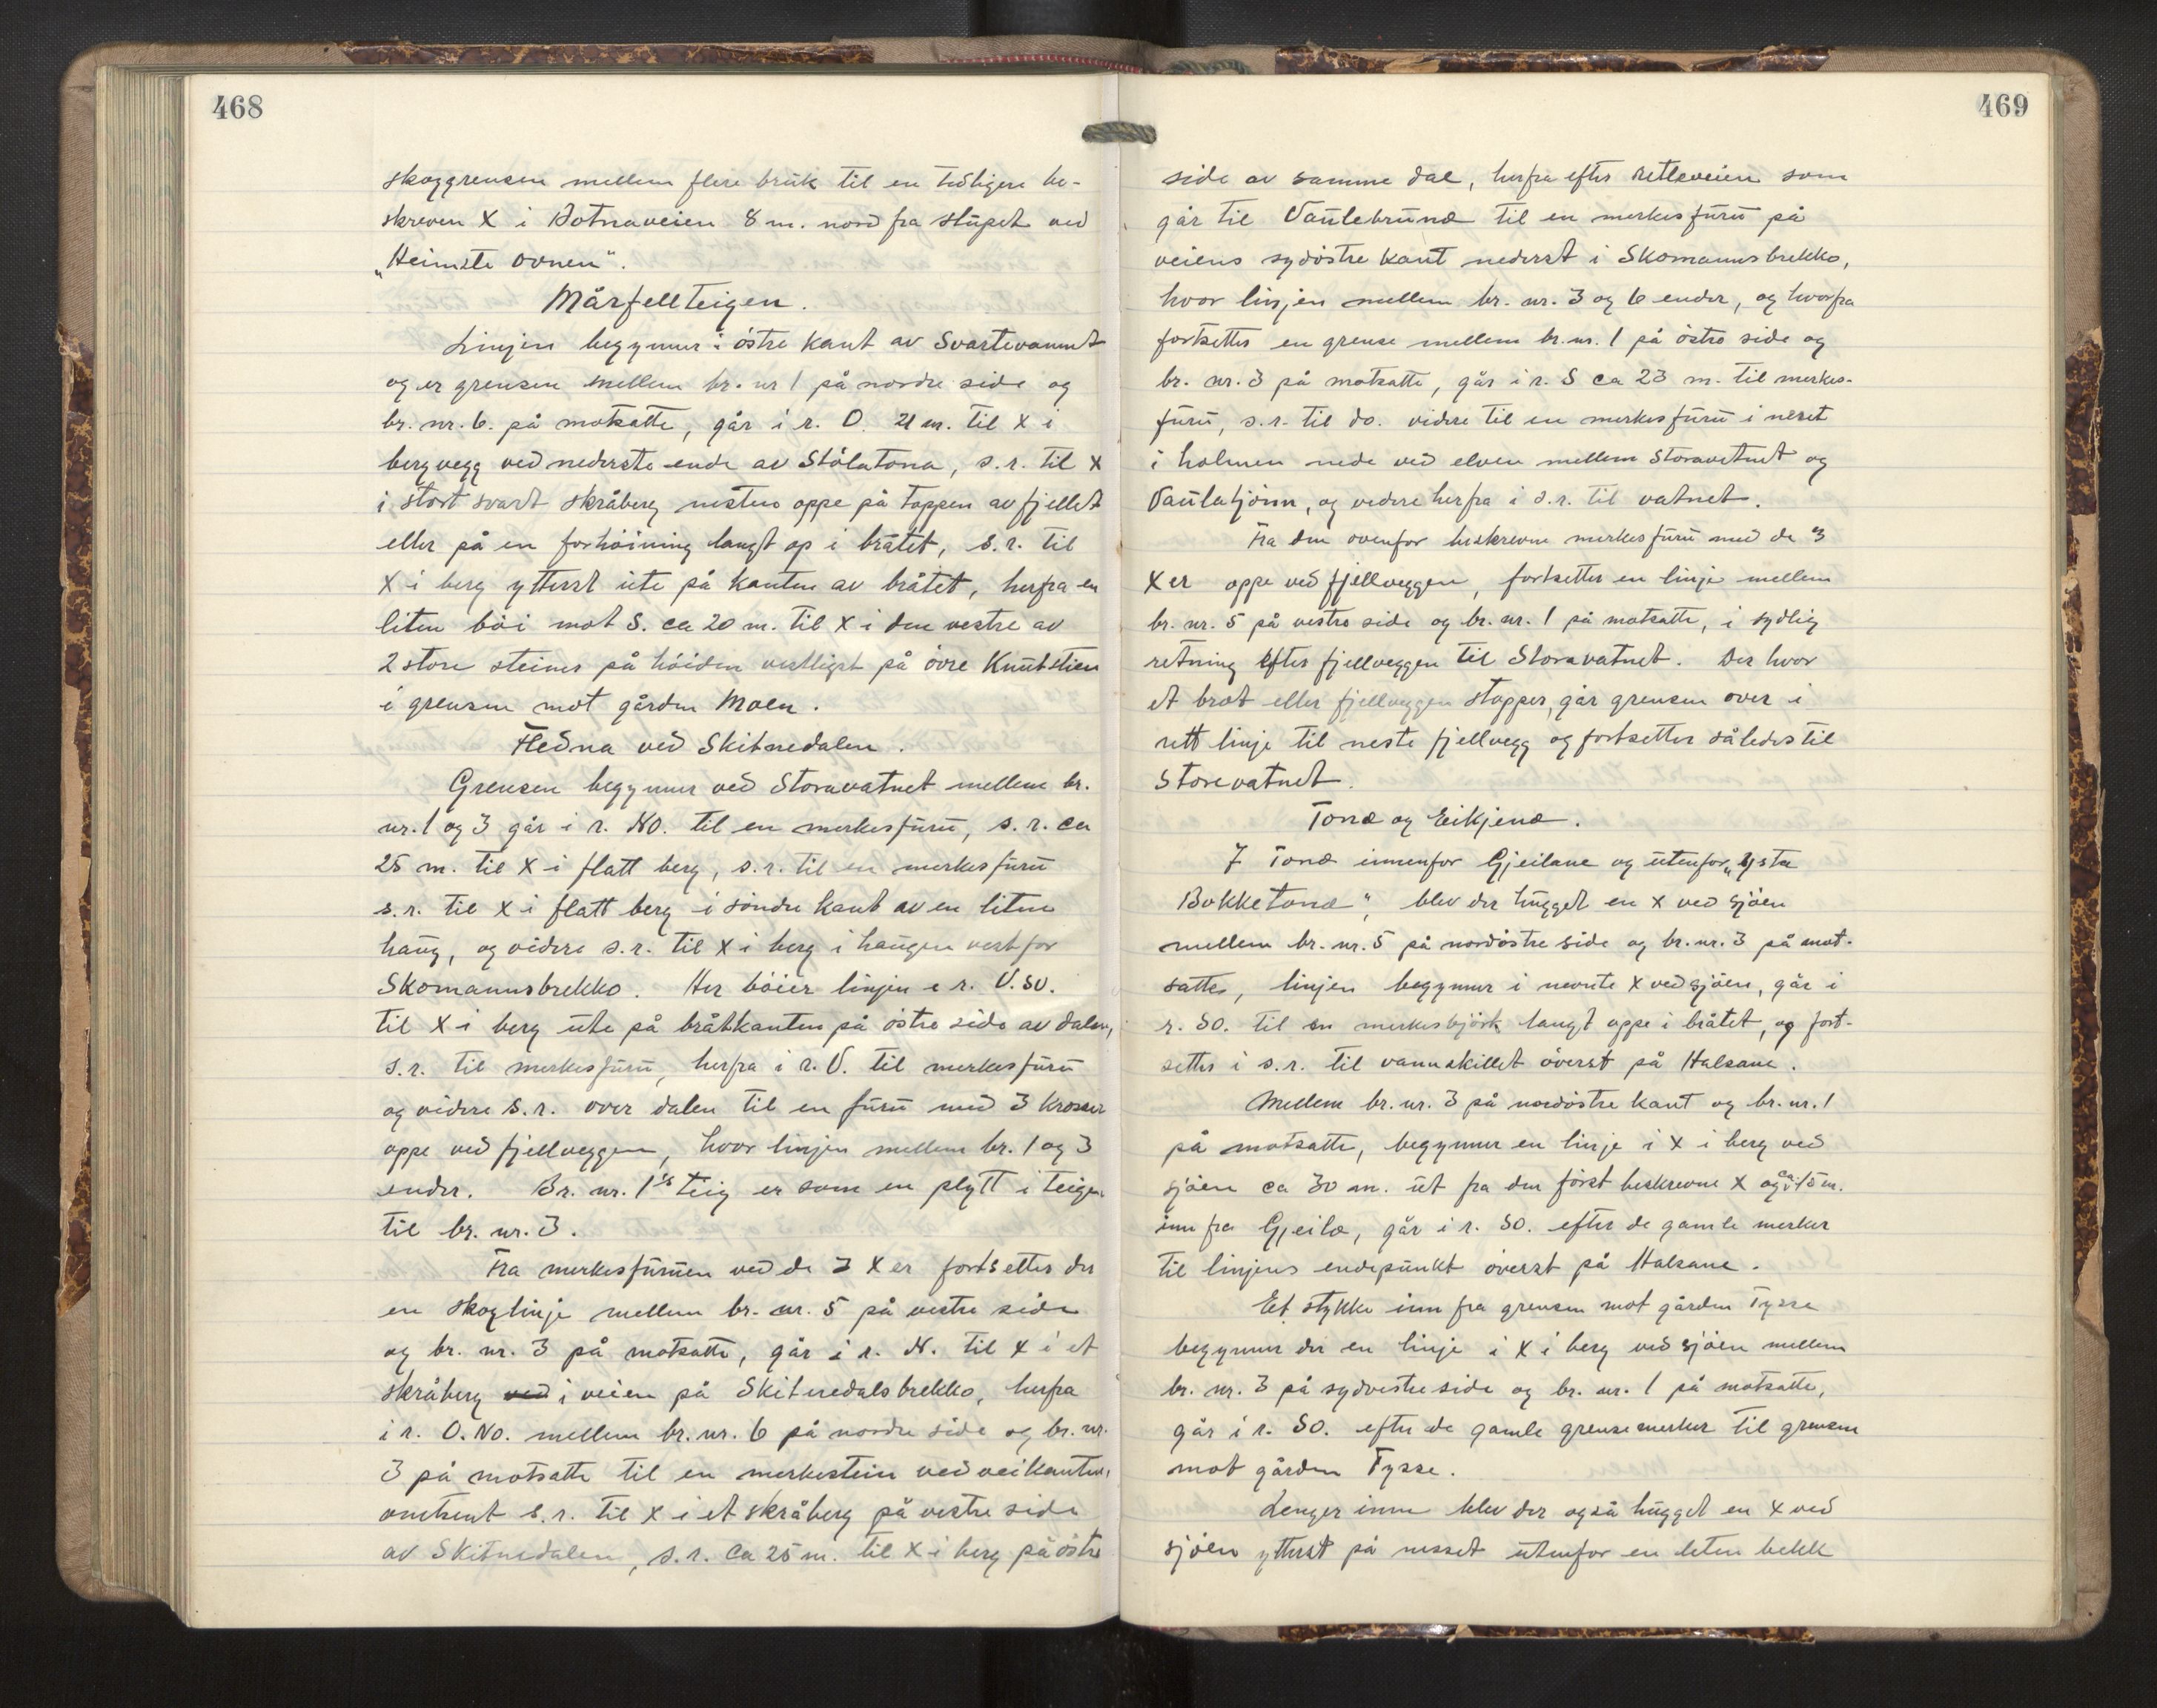 468
skoggrensen mellem flere bruk til en tidligere be-
skreven X i Botnaveien 8 m. nord fra stupet ved
„Heimste ovnen“.
Mårfellteigen.
Linjen begynner i östre kant av Svartevannet
og er grensen mellem br. nr 1 på nordre side og
br. nr. 6. på motsatte, går i r. O. 21 m. til X i
bergvegg ved nederste ende av Stölatona, s.r. til X
i stort svart skråberg nesten oppe på toppen av fjellet
eller på en forhöining langt op i bråtet, s.r. til
X i berg ytterst ute på kanten av bråtet, herfra en
liten böi mot S. ca 20 m. til X i den vestre av
2 store steiner på höiden vestligst på övre Knutstien
i grensen mot gården Moen.
Fledna ved Skitnedalen.
Grensen begynner ved Storavatnet mellem br.
nr. 1 og 3 går i r. NO. til en merkesfuru, s.r. ca
25 m. til X i flatt berg, s.r. til en merkesfuru
s.r. til X i flatt berg i söndre kant av en liten
haug, og videre s.r. til X i berg i haugen vest for
Skomannsbrekko. Her böier linjen i r. V.SV.
til X i berg ute på bråtkanten på östre side av dalen,
s.r. til merkesfuru, herfra i r. V. til merkesfuru
og videre s.r. over dalen til en furu med 3 krosser
oppe ved fjellveggen, hvor linjen mellem br. 1 og 3
ender. Br. nr. 1's teig er som en plytt i teigen
til br. nr. 3.
Fra merkesfuruen ved de 3 X er fortsetter der
en skoglinje mellem br. nr. 5 på vestre side
og br. nr. 3 på motsatte, går i r. N. til X i et
skråberg ved i veien på Skitnedalsbrekko, herfra
i r. O.NO. mellem br. nr. 6 på nordre side og br. nr.
3 på motsatte til en merkestein ved veikanten,
omtrent s.r. til X i et skråberg på vestre side
av Skitnedalen, s.r. ca 25 m. til X i berg på östre
469
side av samme dal, herfra efter retleveien som
går til Vaulebrunæ til en merkesfuru på
veiens sydöstre kant nederst i Skomannsbrekko,
hvor linjen mellem br. nr. 3 og 6 ender, og hvorfra
fortsetter en grense mellem br. nr. 1 på östre side og
br. nr. 3 på motsatte, går i r. S ca 23 m. til merkes-
furu, s.r. til do. videre til en merkesfuru i neset
i holmen nede ved elven mellem Storavatnet og
Vaulatjönn, og videre herfra i s.r. til vatnet.
Fra den ovenfor beskrevne merkesfuru med de 3
X er oppe ved fjellveggen, fortsetter en linje mellem
br. nr. 5 på vestre side og br. nr. 1 på motsatte, i sydlig
retning efter fjellveggen til Storavatnet. Der hvor
et bråt eller fjellveggen stopper, går grensen over i
rett linje til neste fjellvegg og fortsetter således til
Storevatnet.
Tonæ og Eikjenæ.
I Tonæ innenfor Gjeilane og utenfor „Ysta
Bukketonæ“, blev der hugget en X ved sjöen
mellem br. nr. 5 på nordöstre side og br. nr. 3 på mot-
satte, linjen begynner i nevnte X ved sjöen, går i
r. SO. til en merkesbjörk langt oppe i bråtet, og fort-
setter i s.r. til vannskillet överst på Halsane.
Mellem br. nr. 3 på nordöstre kant og br. nr. 1
på motsatte, begynner en linje i X i berg ved
sjöen ca 30 m. ut fra den först beskrevne X og ca 15 m.
inn fra Gjeilæ, går i r. SO. efter de gamle merker
til linjens endepunkt överst på Halsane.
Et stykke inn fra grensen mot gården Tysse
begynner der en linje i X i berg ved sjöen mellem
br. nr. 3 på sydvestre side og br. nr. 1 på motsatte,
går i r. SO. efter de gamle grensemerker til grensen
mot gården Tysse.
Lenger inn blev der også hugget en X ved
sjöen ytterst på nesset utenfor en liten bekk